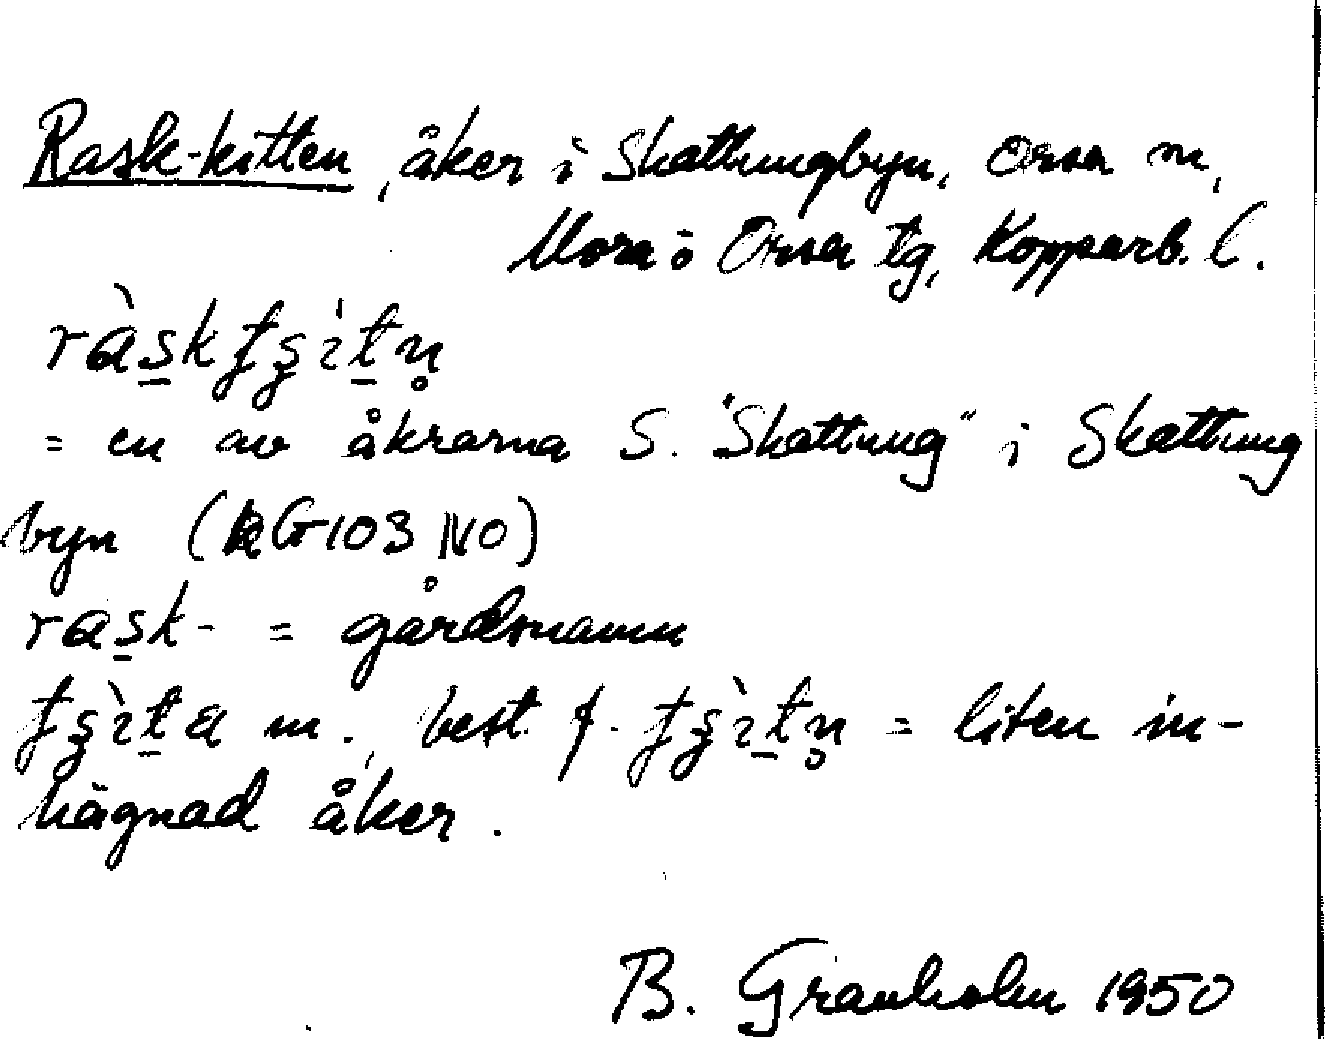 Rask-kitten, åker i Skattungbyn, Orsa sn,
Mora o Orsa tg, Kopparb. l.
ràs̠kʈʂìt̠n̥
= en av åkrarna S. "Skattung" i Skattung
byn (RG103 NO)
ras̠k- = gårdsnamn
ʈʂìt̠a m., best f. ʈʂìt̠n̥ = liten in-
hägnad åker.
B. Granholm 1950